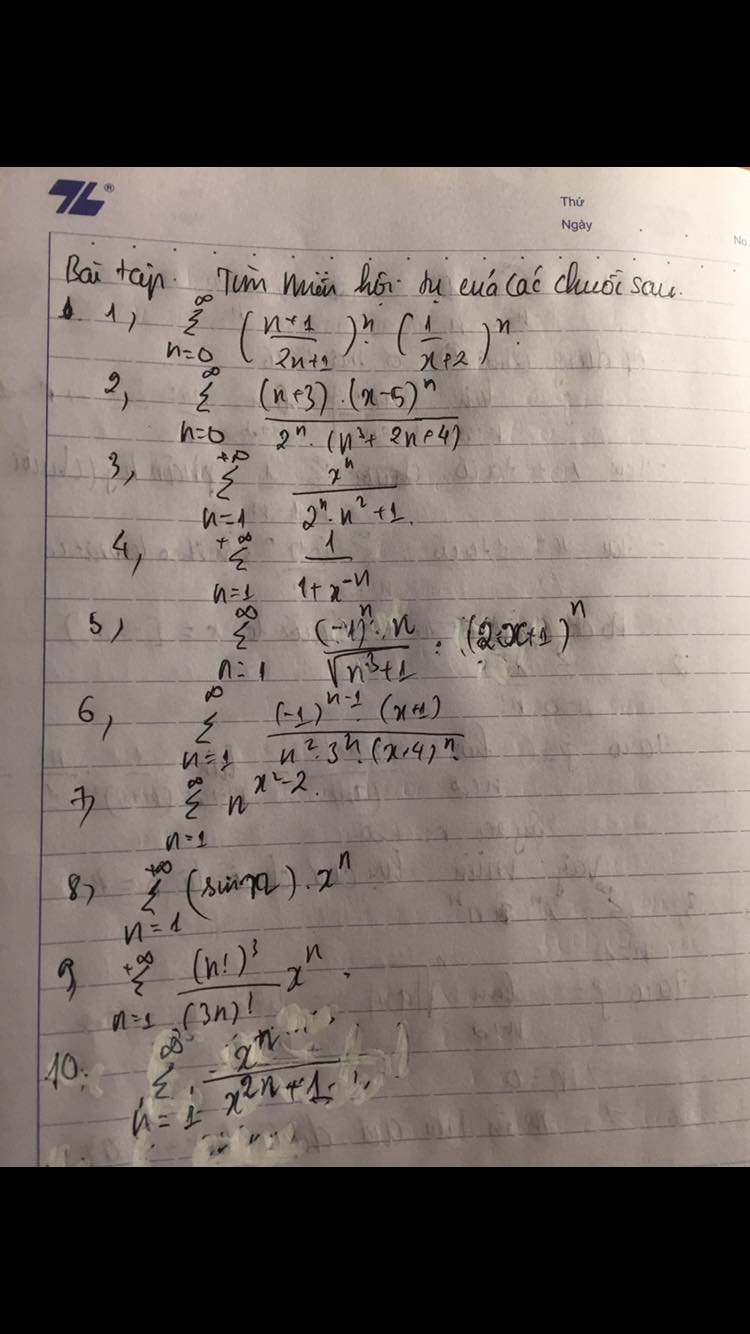 Thứ
Ngày
No
Bài tập. Tìm miền hội tụ của các chuỗi sau.
1, ∞ Σ n=0 ((n+1)/(2n+1))^n . (1/(x+2))^n.
2, ∞ Σ n=0 ((n+3).(x-5)^n)/(2^n.(n^3+2n+4))
3, +∞ Σ n=1 x^n/(2^n.n^2+1.)
4, +∞ Σ n=1 1/(1+x^-n)
5, ∞ Σ n=1 ((-1)^n.n)/√(n^3+1) . (2x+1)^n
6, ∞ Σ n=1 ((-1)^(n-1).(x+1))/(n^2.3^n.(x+4)^n.)
7, ∞ Σ n=1 n^(x^2-2).
8, +∞ Σ n=1 (sin).x^n
9, +∞ Σ n=1 (n!)^3/(3n)! x^n.
10. ∞ Σ n=1 x^n/(x^2n+1)